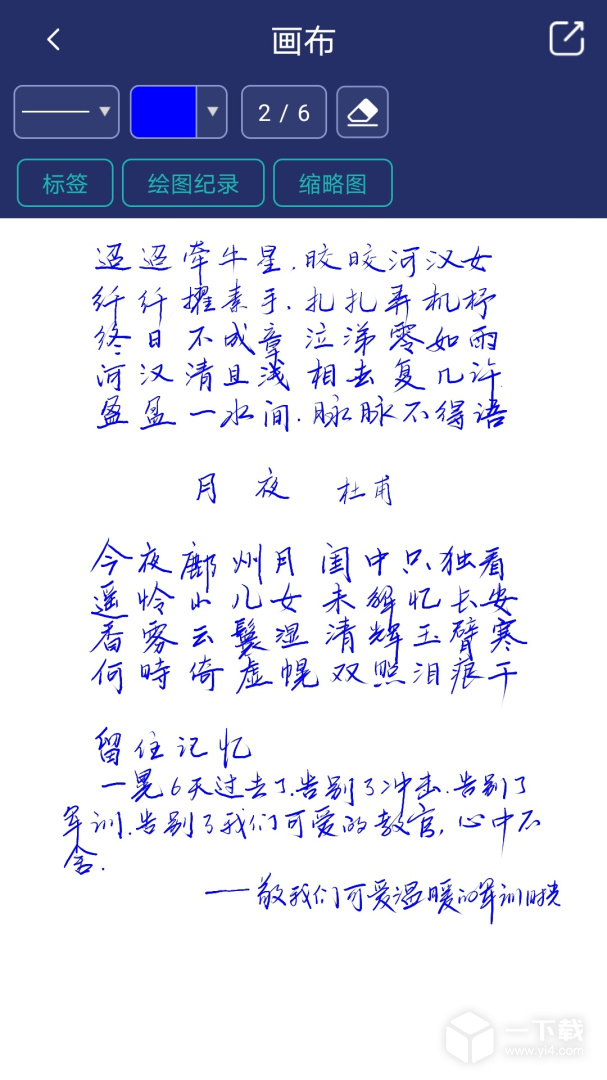 画布
2 / 6
标签 绘图纪录 缩略图
迢迢牵牛星.皎皎河汉女
纤纤擢素手.扎扎弄机杼
终日不成章 泣涕零如雨
河汉清且浅 相去复几许
盈盈一水间.脉脉不得语
月夜 杜甫
今夜鄜州月 闺中只独看
遥怜小儿女 未解忆长安
香雾云鬟湿 清辉玉臂寒
何時倚虚幌 双照泪痕干
留住记忆
一晃6天过去了.告别了冲击.告别了
军训.告别了我们可爱的教官,心中不
舍.
——敬我们可爱温暖的军训时光
一下载
www.yi4.com